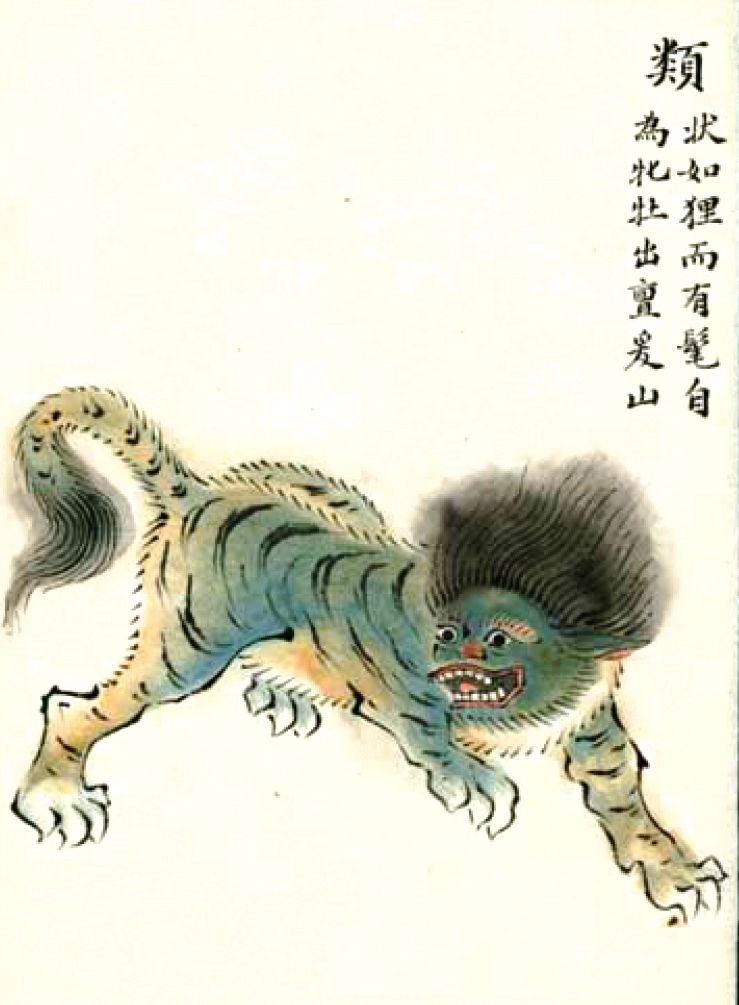 類
狀如狸而有髦自
為牝牡出亶爰山